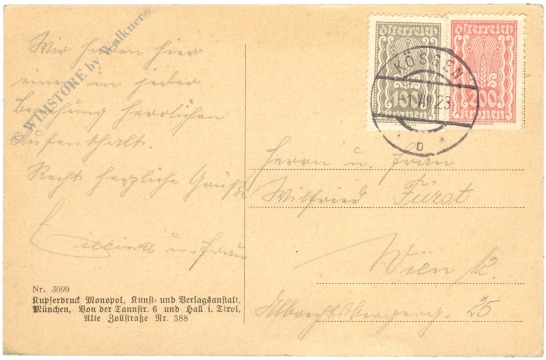 Wir haben hier
einen in jeder
Beziehung herrlichen
Aufenthalt.
Recht herzliche Grüße
u. Frau
Nr. 3099
Kupferdruck Monopol, Kunst- und Verlagsanstalt,
München, Von der Tannstr. 6 und Hall i. Tirol,
Alte Zollstraße Nr. 388
© WIMSTORE by Walkner
österreich
kronen
österreich
200
kronen
KÖSSEN
23
* b *
Herrn u. Frau
Wilfried Fürst
Wien 12.
Albrechtsbergerg. 25